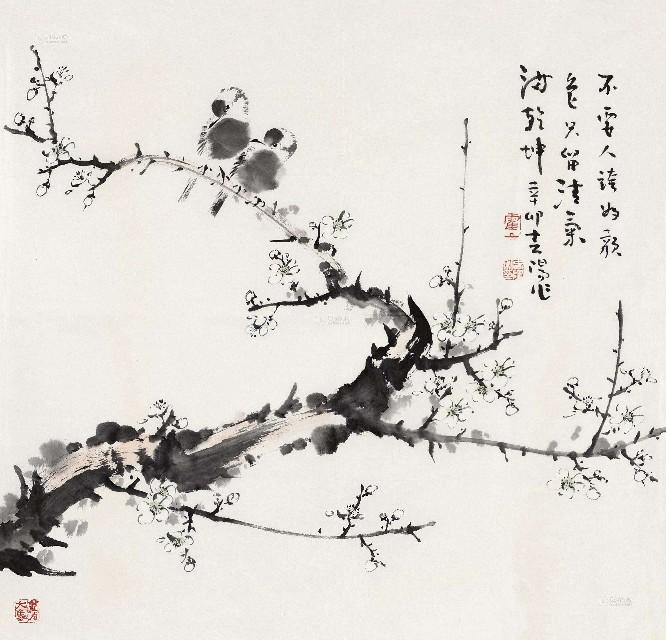 不要人誇好顏
色只留清氣
滿乾坤 辛卯 作